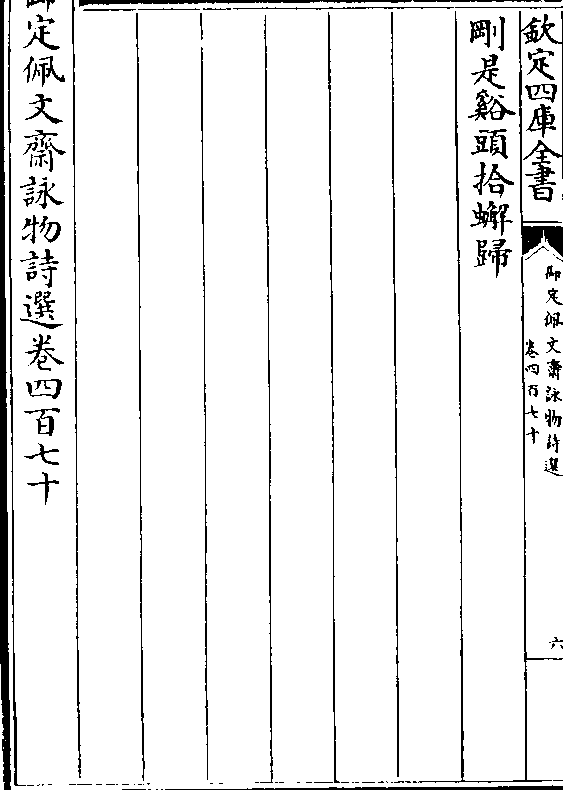 欽定四庫全書
御定佩文齋詠物詩選
卷四百七十
六
剛是谿頭拾蠏歸
御定佩文齋詠物詩選卷四百七十